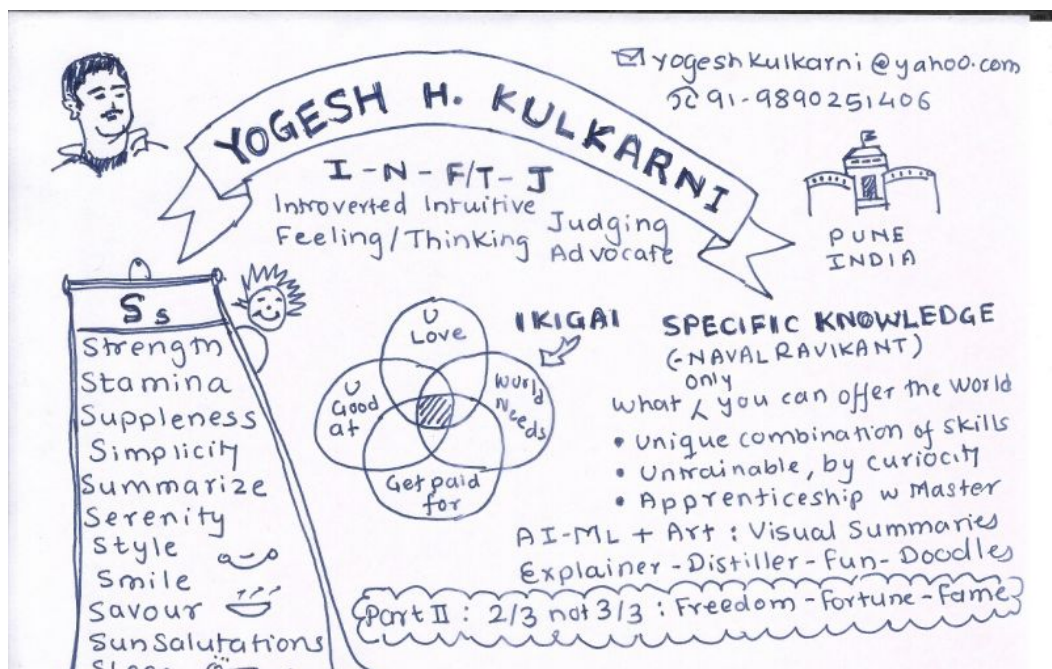 yogeshkulkarni@yahoo.com
91-9890251406
YOGESH H. KULKARNI
I-N-F/T-J
Introverted Intuitive
Feeling/Thinking Judging
Advocate
PUNE
INDIA
Ss
Strength
Stamina
Suppleness
Simplicity
Summarize
Serenity
Style
Smile
Savour
SunSalutations
IKIGAI
U
Love
U
Good
at
World
Needs
Get paid
for
SPECIFIC KNOWLEDGE
(-NAVAL RAVIKANT)
only
What ^ you can offer the World
• Unique combination of skills
• Untrainable, by curiocity
• Apprenticeship w Master
AI-ML + Art : Visual Summaries
Explainer-Distiller-Fun-Doodles
Part II : 2/3 not 3/3 : Freedom-Fortune-Fame